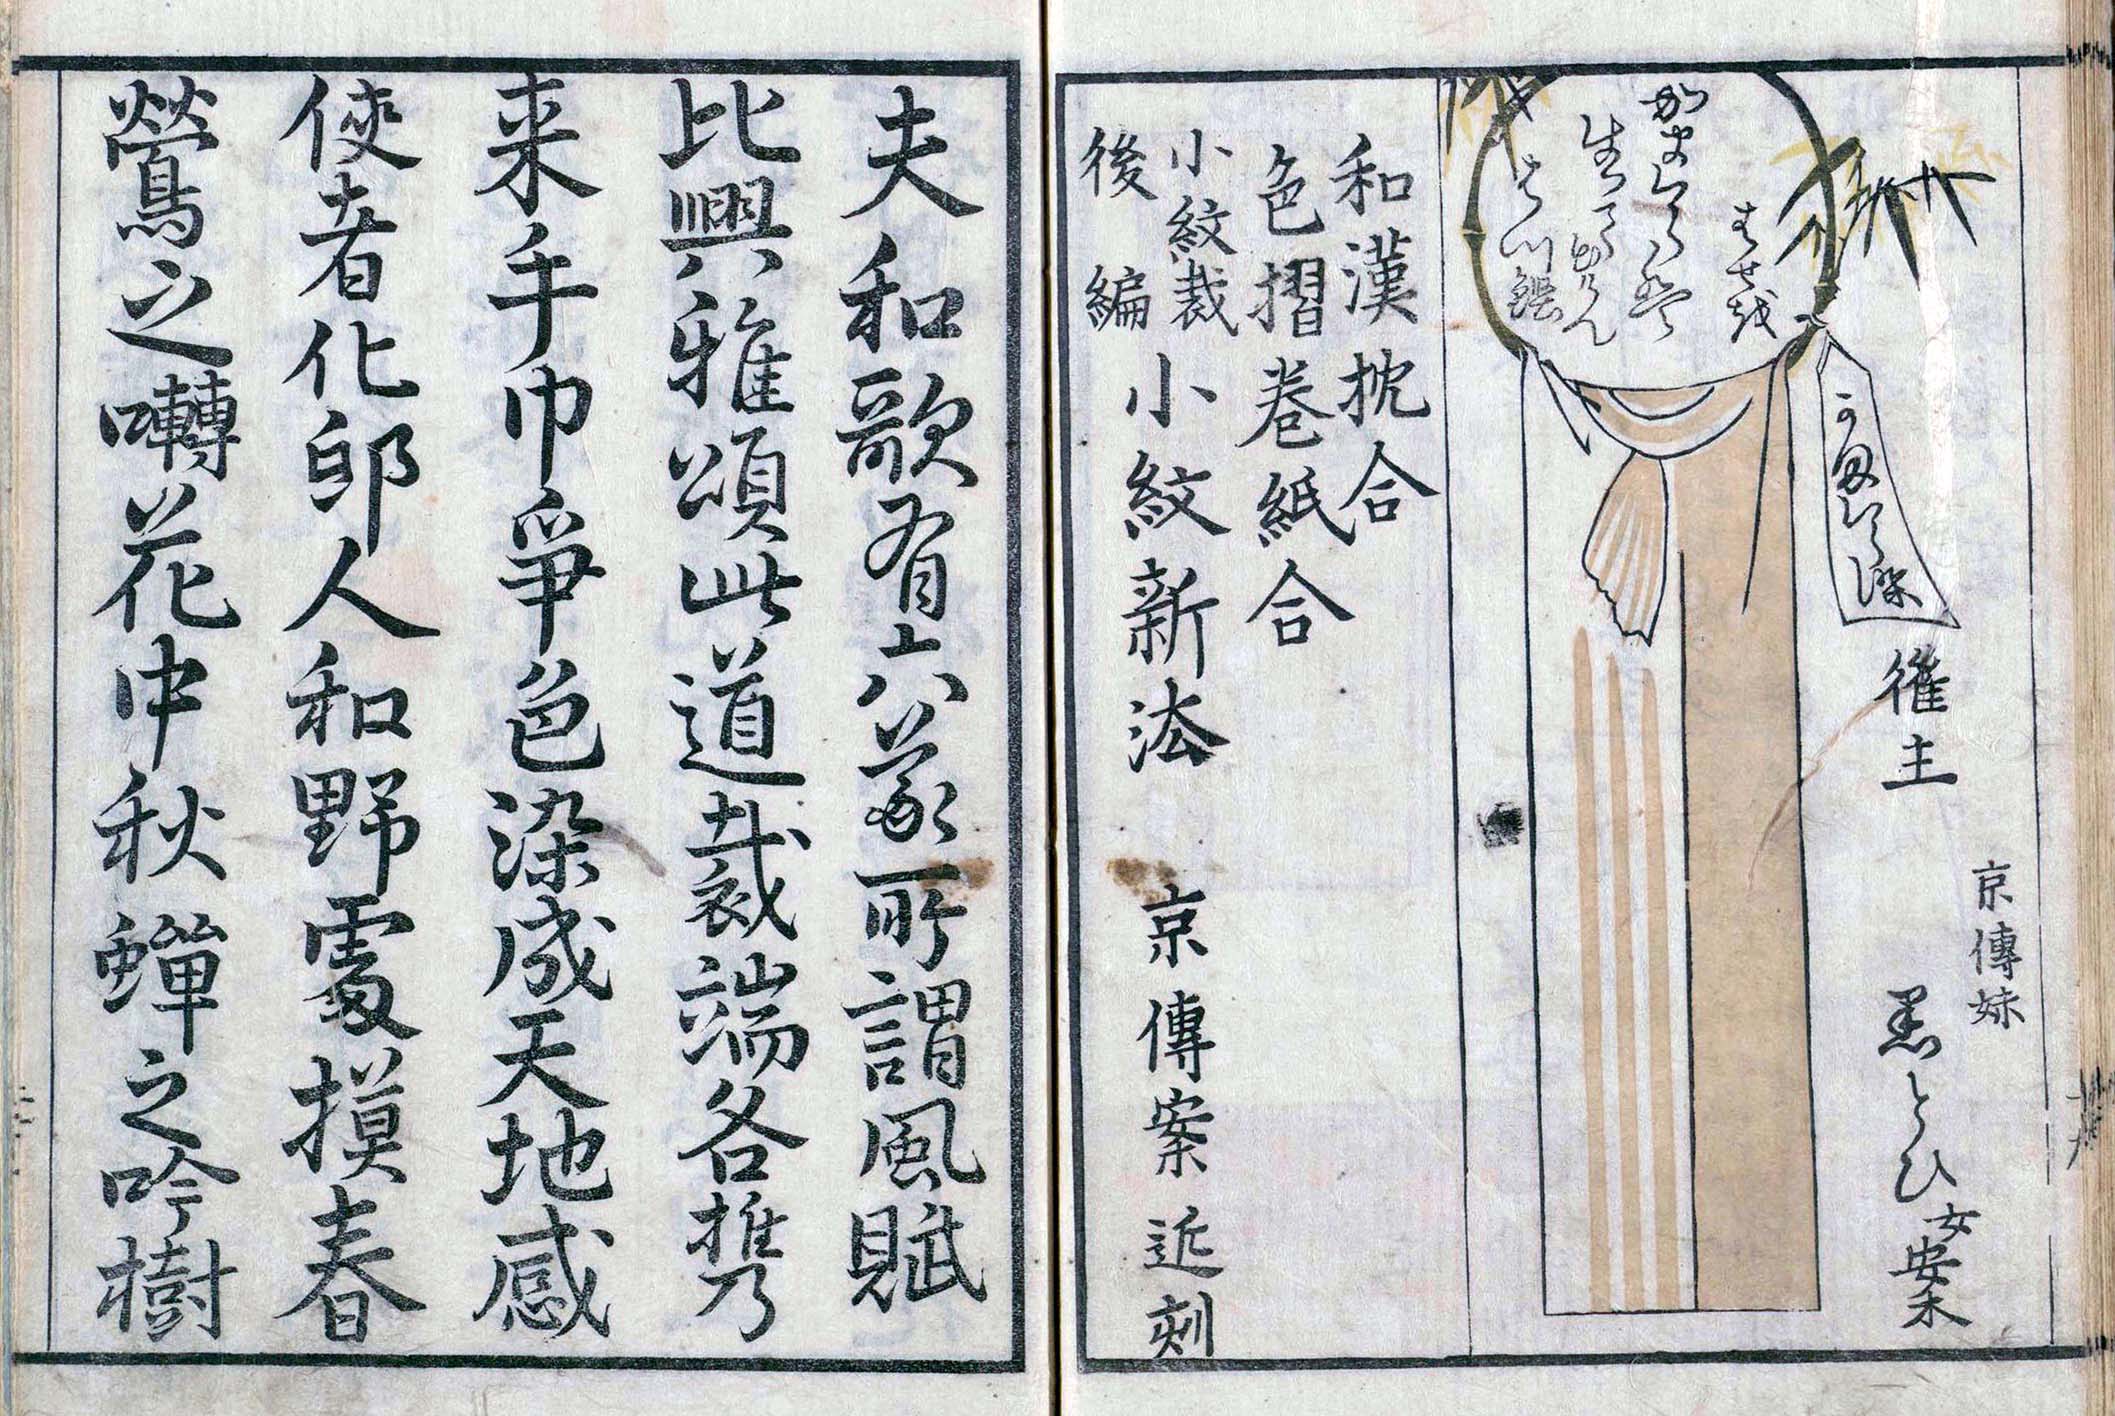 催主
京傳妹
黒とひ女案
和漢枕合
色摺巻紙合
小紋裁
後編
小紋新法
京傳案近刻
夫和歌有六義所謂風賦
比興雅頌此道裁端各携乃
来手巾爭色染成天地感
使者化邱人和野處摸春
鶯之囀花中秋蟬之吟樹